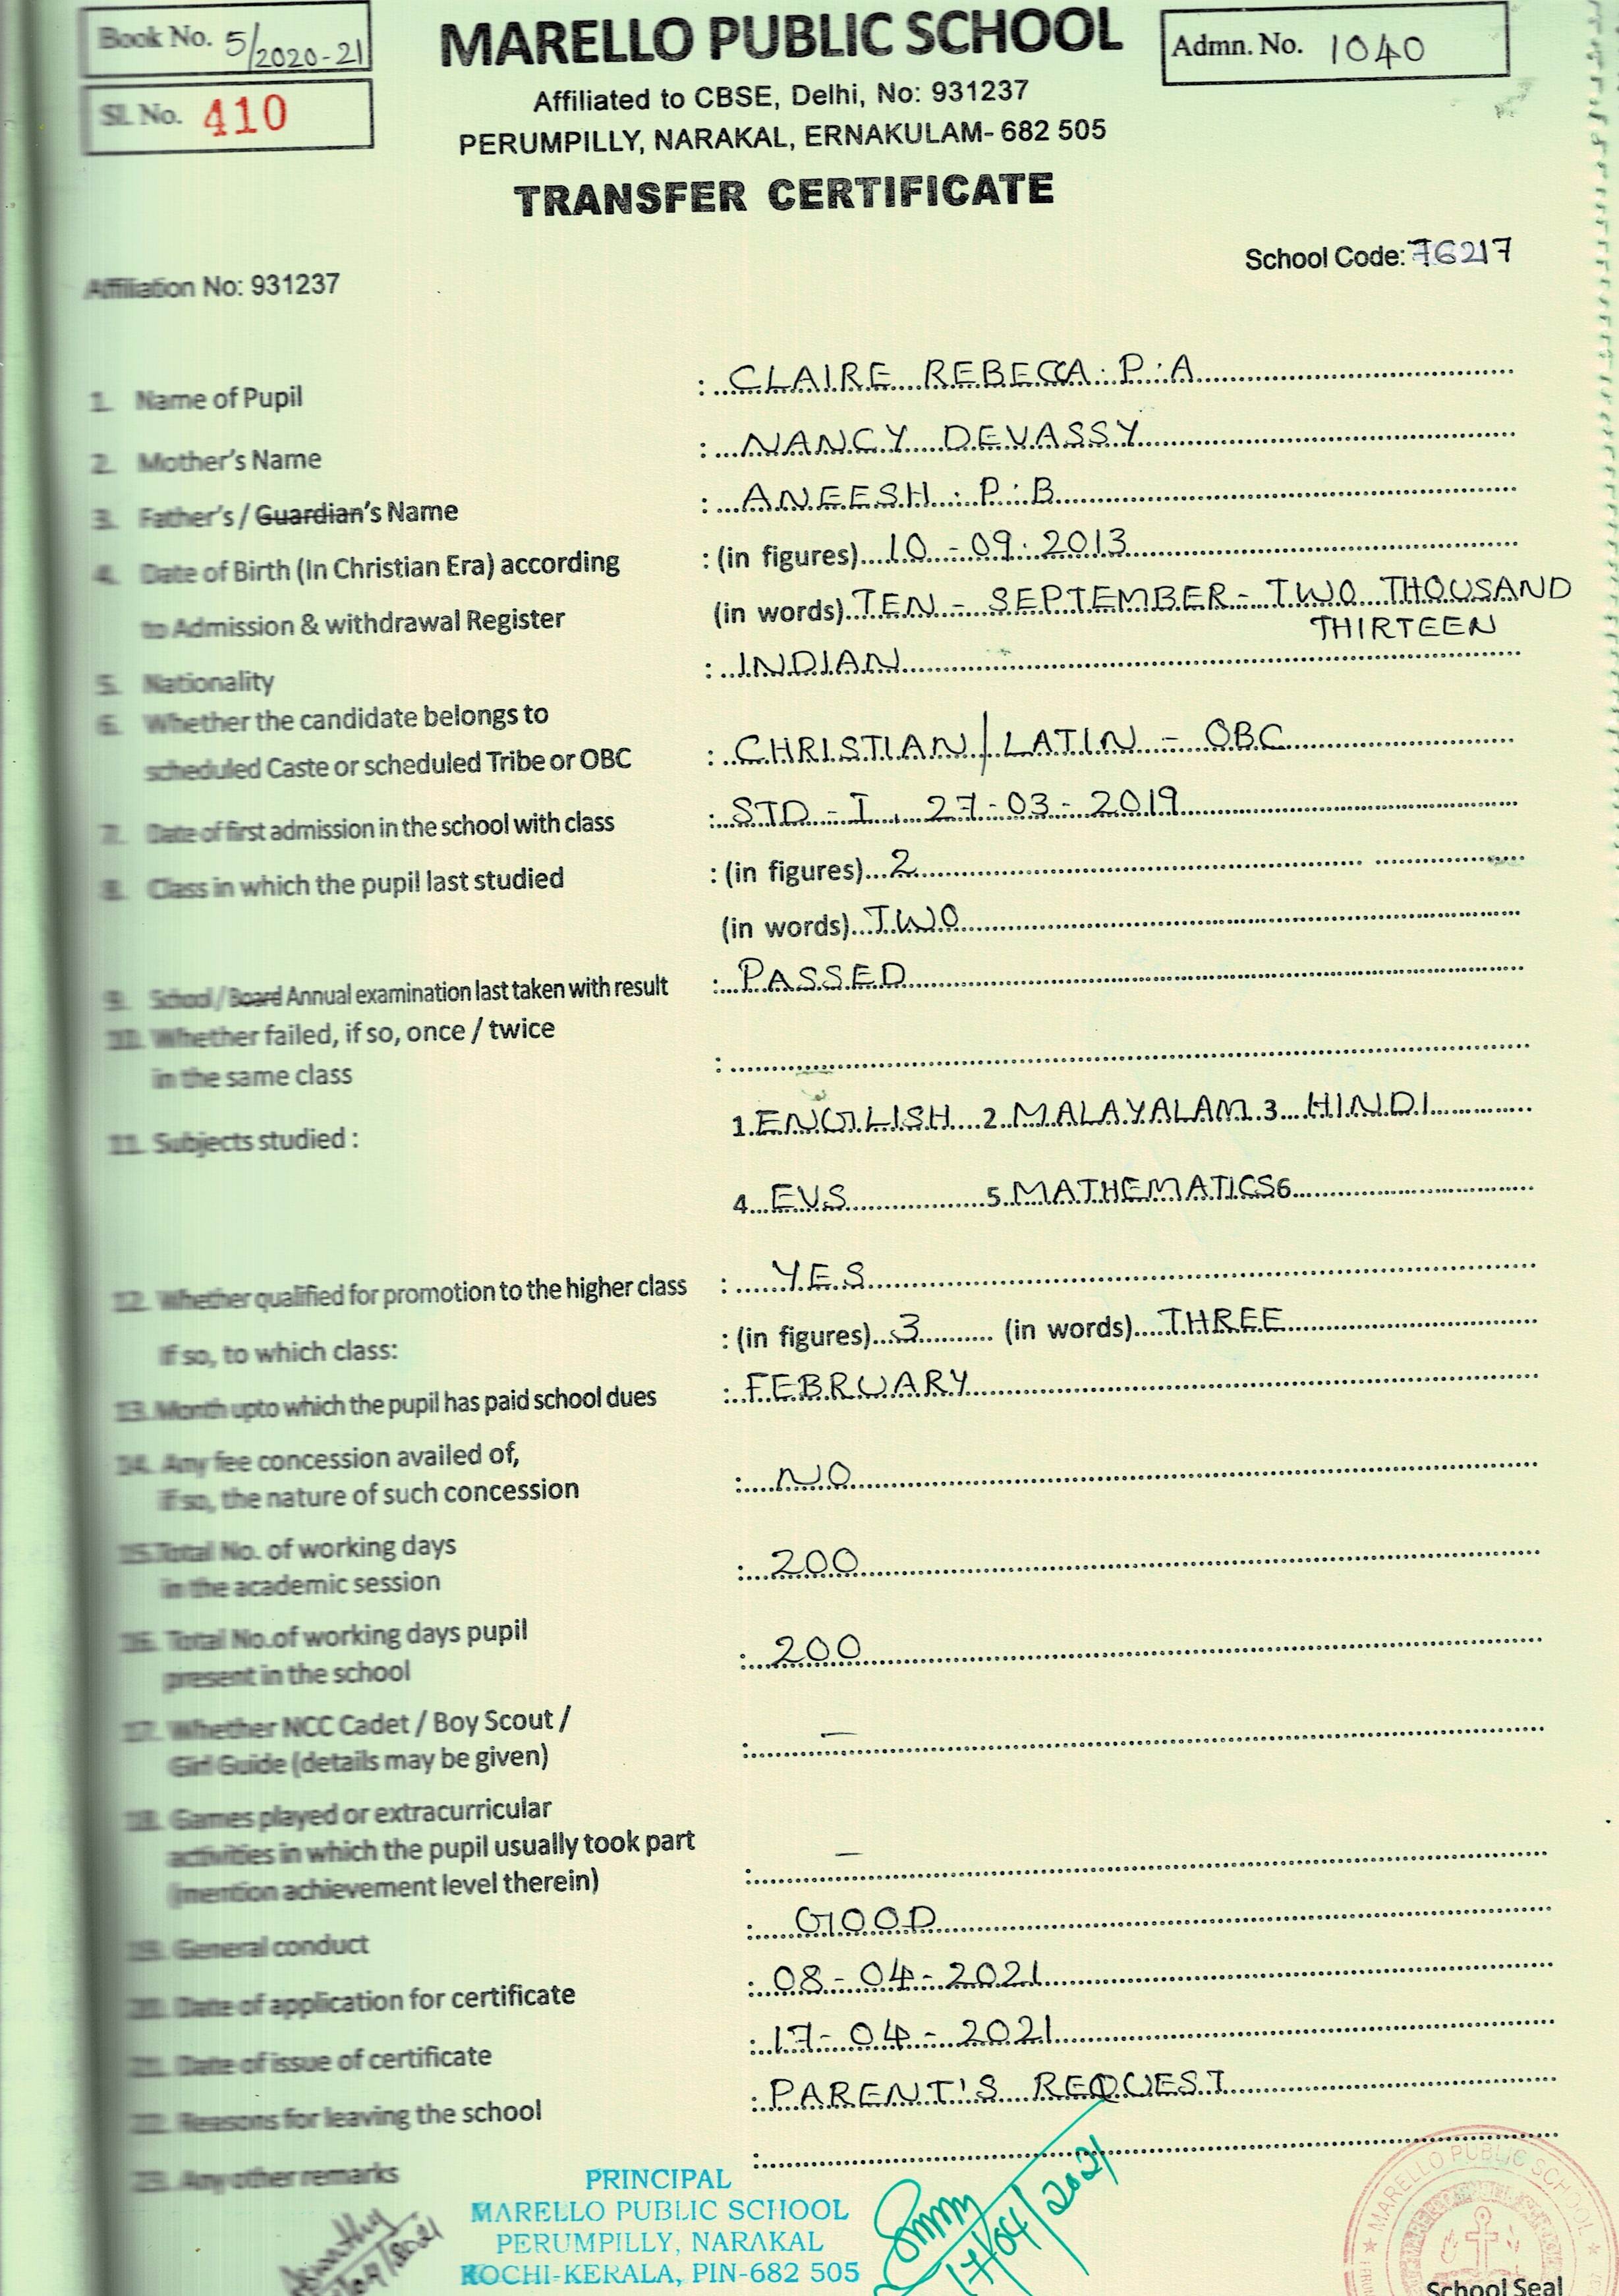 Book No. 5/2020-21
MARELLO PUBLIC SCHOOL
Admn. No. 1040
Sl. No. 410
Affiliated to CBSE, Delhi, No: 931237
PERUMPILLY, NARAKAL, ERNAKULAM- 682 505
TRANSFER CERTIFICATE
School Code: 76217
Affiliation No: 931237
1. Name of Pupil : CLAIRE REBECCA . P . A
2. Mother's Name : NANCY DEVASSY
3. Father's / Guardian's Name : ANEESH . P . B
4. Date of Birth (In Christian Era) according : (in figures) 10 - 09 . 2013
to Admission & withdrawal Register (in words) TEN - SEPTEMBER - TWO THOUSAND
THIRTEEN
5. Nationality : INDIAN
6. Whether the candidate belongs to
scheduled Caste or scheduled Tribe or OBC : CHRISTIAN / LATIN - OBC
7. Date of first admission in the school with class : STD - I , 27 - 03 - 2019
8. Class in which the pupil last studied : (in figures) 2
(in words) TWO
9. School / Board Annual examination last taken with result : PASSED
10. Whether failed, if so, once / twice
in the same class :
11. Subjects studied : 1. ENGLISH 2. MALAYALAM 3 HINDI
4 EVS 5 MATHEMATICS 6
12. Whether qualified for promotion to the higher class : YES
If so, to which class: : (in figures) 3 (in words) THREE
13. Month upto which the pupil has paid school dues : FEBRUARY
14. Any fee concession availed of,
if so, the nature of such concession : NO
15. Total No. of working days
in the academic session : 200
16. Total No.of working days pupil
present in the school : 200
17. Whether NCC Cadet / Boy Scout /
Girl Guide (details may be given) : —
18. Games played or extracurricular
activities in which the pupil usually took part
(mention achievement level therein) : —
19. General conduct : GOOD
20. Date of application for certificate : 08 - 04 - 2021
21. Date of issue of certificate : 17 - 04 - 2021
22. Reasons for leaving the school : PARENT'S REQUEST
23. Any other remarks :
PRINCIPAL
MARELLO PUBLIC SCHOOL
PERUMPILLY, NARAKAL
KOCHI-KERALA, PIN-682 505
17/04/2021
MARELLO PUBLIC SCHOOL
School Seal